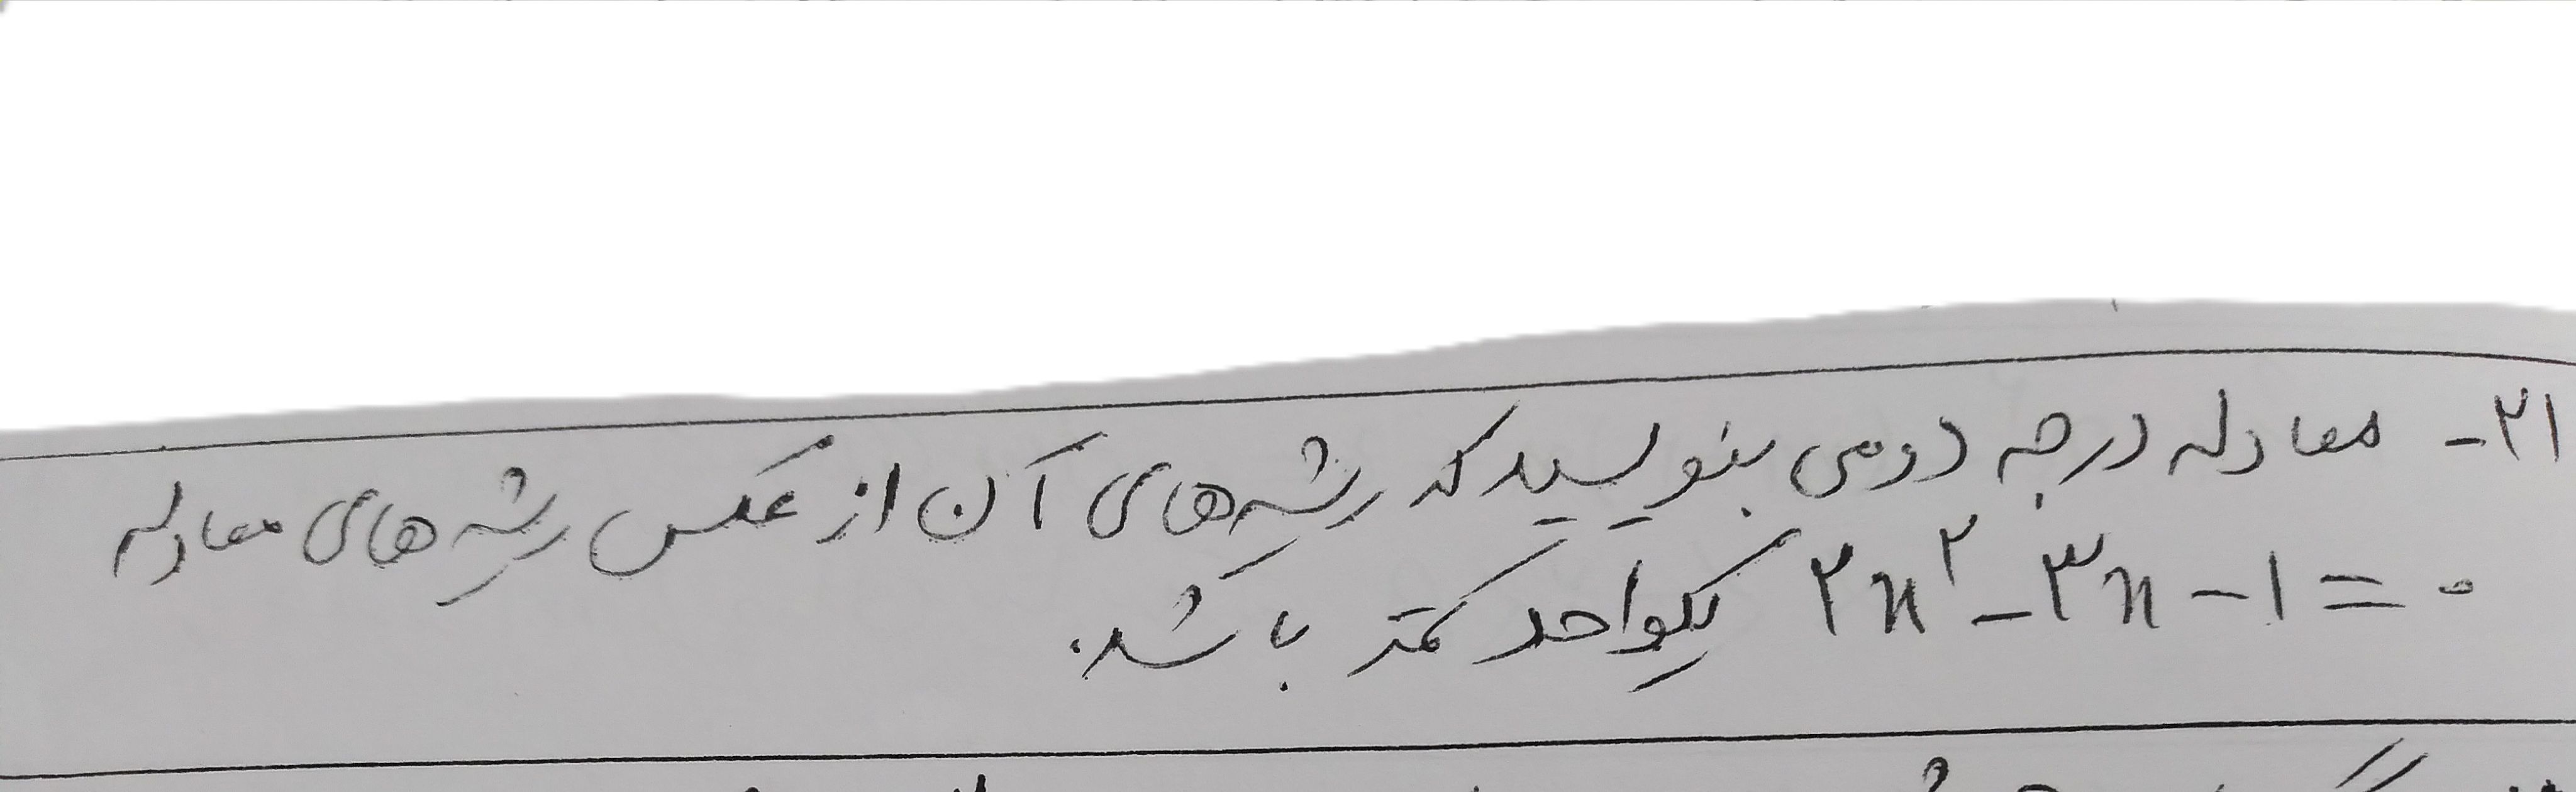 ۲۱- معادله درجه دومی بنویسید که ریشه‌های آن از عکس ریشه‌های معادله
۲x^۲-۳x-۱=۰ یکواحد کمتر باشد.